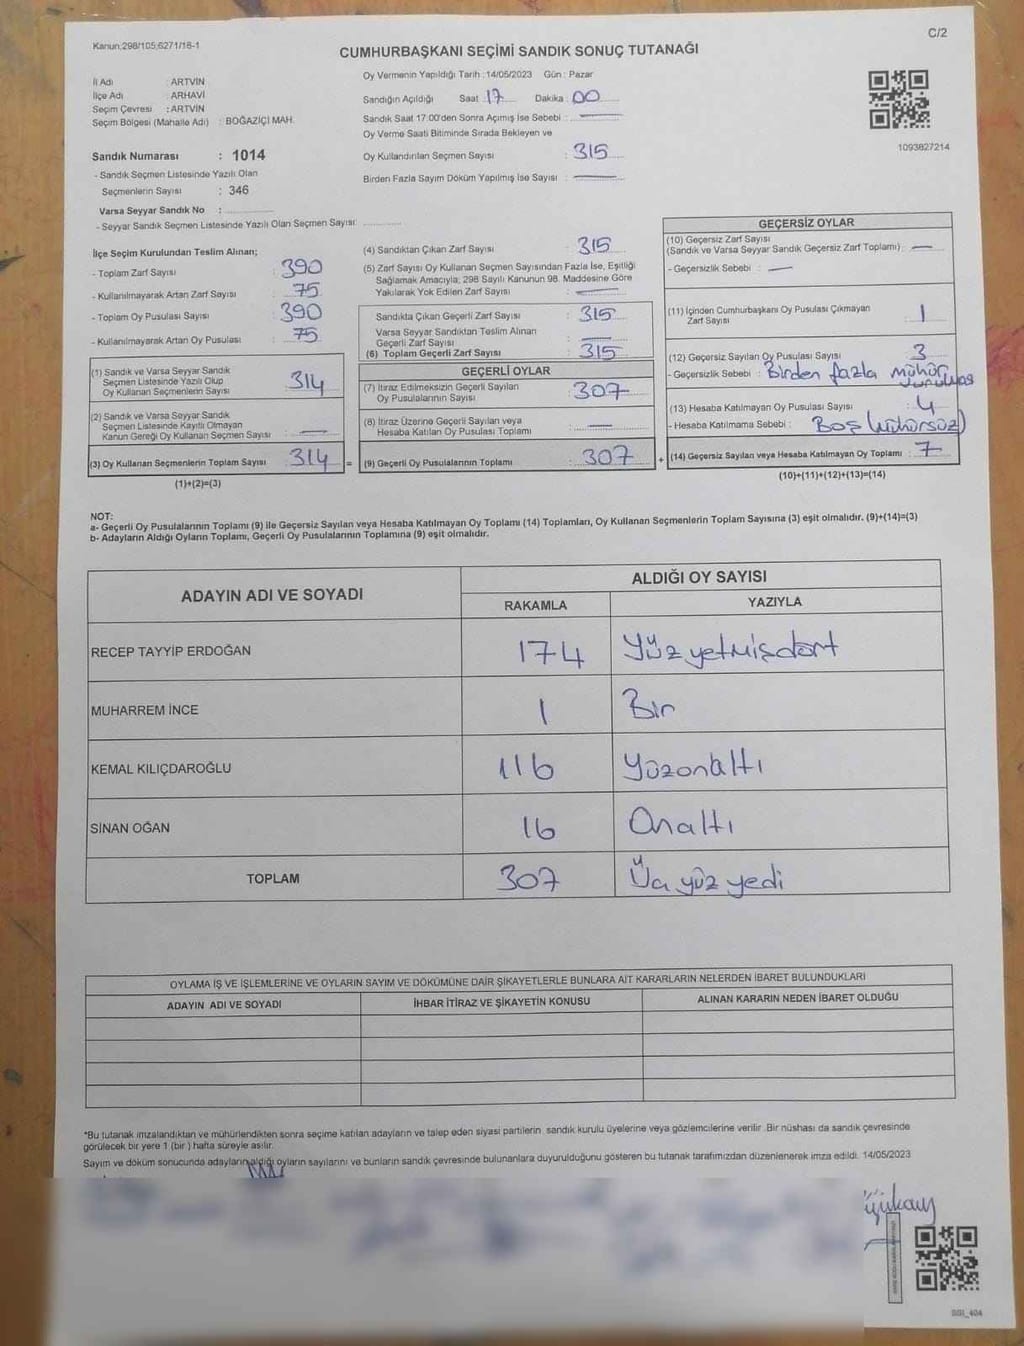 Kanun:298/105;6271/18-1
C/2
CUMHURBAŞKANI SEÇİMİ SANDIK SONUÇ TUTANAĞI
İl Adı : ARTVİN
İlçe Adı : ARHAVİ
Seçim Çevresi : ARTVİN
Seçim Bölgesi (Mahalle Adı) : BOĞAZİÇİ MAH.
Sandık Numarası : 1014
- Sandık Seçmen Listesinde Yazılı Olan
Seçmenlerin Sayısı : 346
Varsa Seyyar Sandık No :
- Seyyar Sandık Seçmen Listesinde Yazılı Olan Seçmen Sayısı:
Oy Vermenin Yapıldığı Tarih :14/05/2023 Gün : Pazar
Sandığın Açıldığı Saat :17 Dakika :00
Sandık Saat 17:00'den Sonra Açımış İse Sebebi : —
Oy Verme Saati Bitiminde Sırada Bekleyen ve
Oy Kullandırılan Seçmen Sayısı : 315
Birden Fazla Sayım Döküm Yapılmış İse Sayısı : —
1093827214
İlçe Seçim Kurulundan Teslim Alınan;
- Toplam Zarf Sayısı : 390
- Kullanılmayarak Artan Zarf Sayısı : 75
- Toplam Oy Pusulası Sayısı : 390
- Kullanılmayarak Artan Oy Pusulası : 75
(1) Sandık ve Varsa Seyyar Sandık
Seçmen Listesinde Yazılı Olup
Oy Kullanan Seçmenlerin Sayısı : 314
(2) Sandık ve Varsa Seyyar Sandık
Seçmen Listesinde Kayıtlı Olmayan
Kanun Gereği Oy Kullanan Seçmen Sayısı : —
(3) Oy Kullanan Seçmenlerin Toplam Sayısı : 314 =
(1)+(2)=(3)
(4) Sandıktan Çıkan Zarf Sayısı : 315
(5) Zarf Sayısı Oy Kullanan Seçmen Sayısından Fazla İse, Eşitliği
Sağlamak Amacıyla; 298 Sayılı Kanunun 98. Maddesine Göre
Yakılarak Yok Edilen Zarf Sayısı : —
Sandıkta Çıkan Geçerli Zarf Sayısı : 315
Varsa Seyyar Sandıktan Teslim Alınan
Geçerli Zarf Sayısı : —
(6) Toplam Geçerli Zarf Sayısı : 315
GEÇERLİ OYLAR
(7) İtiraz Edilmeksizin Geçerli Sayılan
Oy Pusulalarının Sayısı : 307
(8) İtiraz Üzerine Geçerli Sayılan veya
Hesaba Katılan Oy Pusulası Toplamı : —
(9) Geçerli Oy Pusulalarının Toplamı : 307 +
GEÇERSİZ OYLAR
(10) Geçersiz Zarf Sayısı
(Sandık ve Varsa Seyyar Sandık Geçersiz Zarf Toplamı) : —
- Geçersizlik Sebebi : —
(11) İçinden Cumhurbaşkanı Oy Pusulası Çıkmayan
Zarf Sayısı : 1
(12) Geçersiz Sayılan Oy Pusulası Sayısı : 3
- Geçersizlik Sebebi : Birden fazla mühür
vurulmas
(13) Hesaba Katılmayan Oy Pusulası Sayısı : 4
- Hesaba Katılmama Sebebi : Boş (mühürsüz)
(14) Geçersiz Sayılan veya Hesaba Katılmayan Oy Toplamı : 7
(10)+(11)+(12)+(13)=(14)
NOT:
a- Geçerli Oy Pusulalarının Toplamı (9) ile Geçersiz Sayılan veya Hesaba Katılmayan Oy Toplamı (14) Toplamları, Oy Kullanan Seçmenlerin Toplam Sayısına (3) eşit olmalıdır. (9)+(14)=(3)
b- Adayların Aldığı Oyların Toplamı, Geçerli Oy Pusulalarının Toplamına (9) eşit olmalıdır.
ADAYIN ADI VE SOYADI
ALDIĞI OY SAYISI
RAKAMLA YAZIYLA
RECEP TAYYİP ERDOĞAN 174 Yüz yetmişdört
MUHARREM İNCE 1 Bir
KEMAL KILIÇDAROĞLU 116 Yüzonaltı
SİNAN OĞAN 16 Onaltı
TOPLAM 307 Üç yüz yedi
OYLAMA İŞ VE İŞLEMLERİNE VE OYLARIN SAYIM VE DÖKÜMÜNE DAİR ŞİKAYETLERLE BUNLARA AİT KARARLARIN NELERDEN İBARET BULUNDUKLARI
ADAYIN ADI VE SOYADI
İHBAR İTİRAZ VE ŞİKAYETİN KONUSU
ALINAN KARARIN NEDEN İBARET OLDUĞU
*Bu tutanak imzalandıktan ve mühürlendikten sonra seçime katılan adayların ve talep eden siyasi partilerin sandık kurulu üyelerine veya gözlemcilerine verilir .Bir nüshası da sandık çevresinde
görülecek bir yere 1 (bir ) hafta süreyle asılır.
Sayım ve döküm sonucunda adayların aldığı oyların sayılarını ve bunların sandık çevresinde bulunanlara duyurulduğunu gösteren bu tutanak tarafımızdan düzenlenerek imza edildi. 14/05/2023